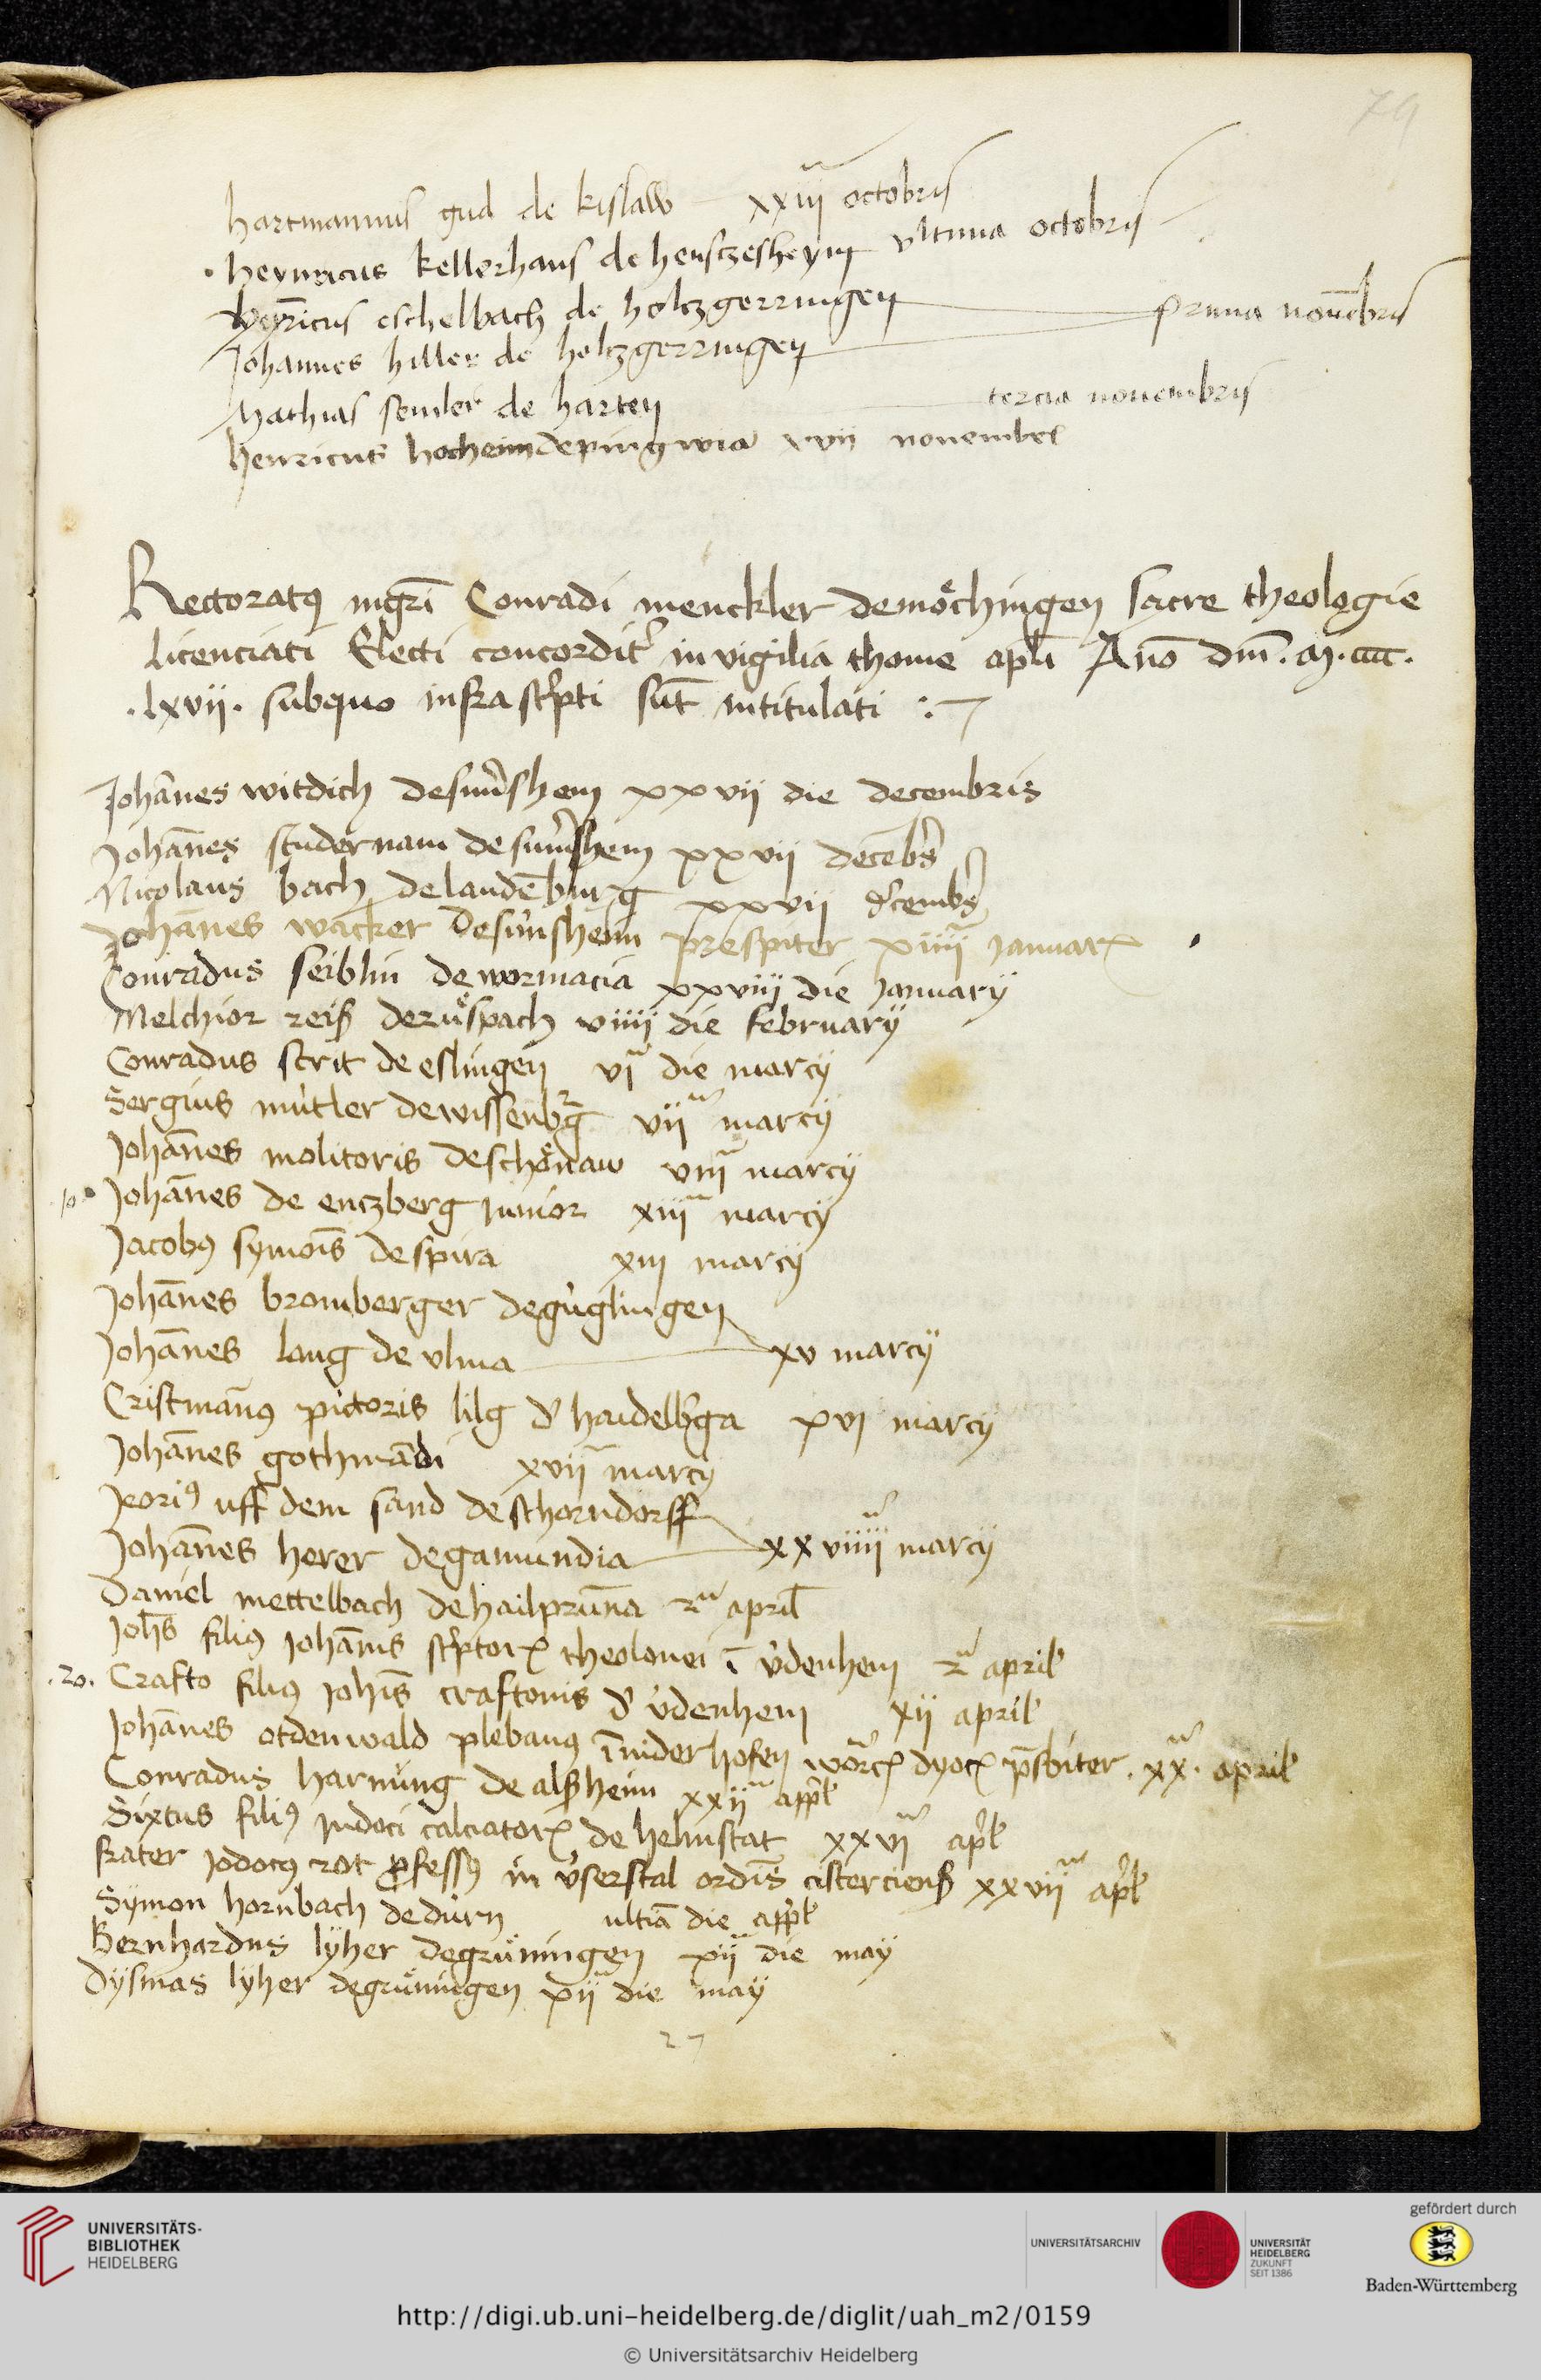 79
hartmannus gud de kislaw xxiii octobris
heynricus kellerhans de hentzesheym vltima octobris
heynricus eschelbach de holtzgerringen prima nouēbris
Johannes hiller de holtzgerringen
Mathias semler de harten tercia nouembris
henricus hocheim de pingwia xvii nouembr
Rectoratꝰ mgrī Conradi menckler de möchingen sacre theologie
licenciati Electi concordit᷑ in vigilia thome apl̄i Año dm̄. M.cccc.
.lxvii. sub quo infrasc᷑pti sūt intitulati :7
Johānes witdich de sunßhem xxvii die decembris
Johānes studernam de sunßhem xxvii decēbr̄
Nicolaus bach de laudēburg xxvii decembr̄
Johānes wacker de sunsheim prespiter xiiii Januarꝭ
Conradus seiblin de wormacia xxviii die January
Melchior reiß de ruͤspach viiii die february
Conradus strit de eslingen vi die marcij
Sergius mutler de wissenb᷑g vii marcij
Johānes molitoris de schoͤnaw viii marcij
10 Johānes de enczberg iunior xiii marcij
Jacobꝰ symoīs de spira xiii marcij
Johānes bromberger de guglingen
Johānes lang de vlma xv marcij
Cristmānꝰ pictoris lilg d᷑ haidelb᷑ga xvi marcij
Johānes gothmādi xvii marcij
Jeoriꝰ uff dem sand de schorndorff
Johānes herer de gamundia xxviiii marcij
Daniel mettelbach de hailprūna 2ᵃ april
Joh̄s filiꝰ iohānis sc᷑ptorꝭ theolonei ī vdenhem 2ᵃ april
.20. Crafto filiꝰ ioh̄is craftonis d᷑ vdenhem xii april
Johānes otdenwald plebanꝰ ī niderhofen wor̄cꝭ dyocꝭ p̄sbiter . xx. april
Conradus harnung de alßheim xxii apl̄
Sixtus filiꝰ iudoci calciatorꝭ de helmstat xxvi apl̄
frater iodocꝰ rot ꝓfessꝰ in vserstal ordīs cistercienß xxvii apl̄
Symon hornbach de durn ultiā die apl̄
Bernhardus lyher de gruͤningen xii die may
Dysmas lyher de gruͤningen xii die may
27
UNIVERSITÄTS-
BIBLIOTHEK
HEIDELBERG
UNIVERSITÄTSARCHIV
UNIVERSITÄT
HEIDELBERG
ZUKUNFT
SEIT 1386
gefördert durch
Baden-Württemberg
http://digi.ub.uni-heidelberg.de/diglit/uah_m2/0159
© Universitätsarchiv Heidelberg